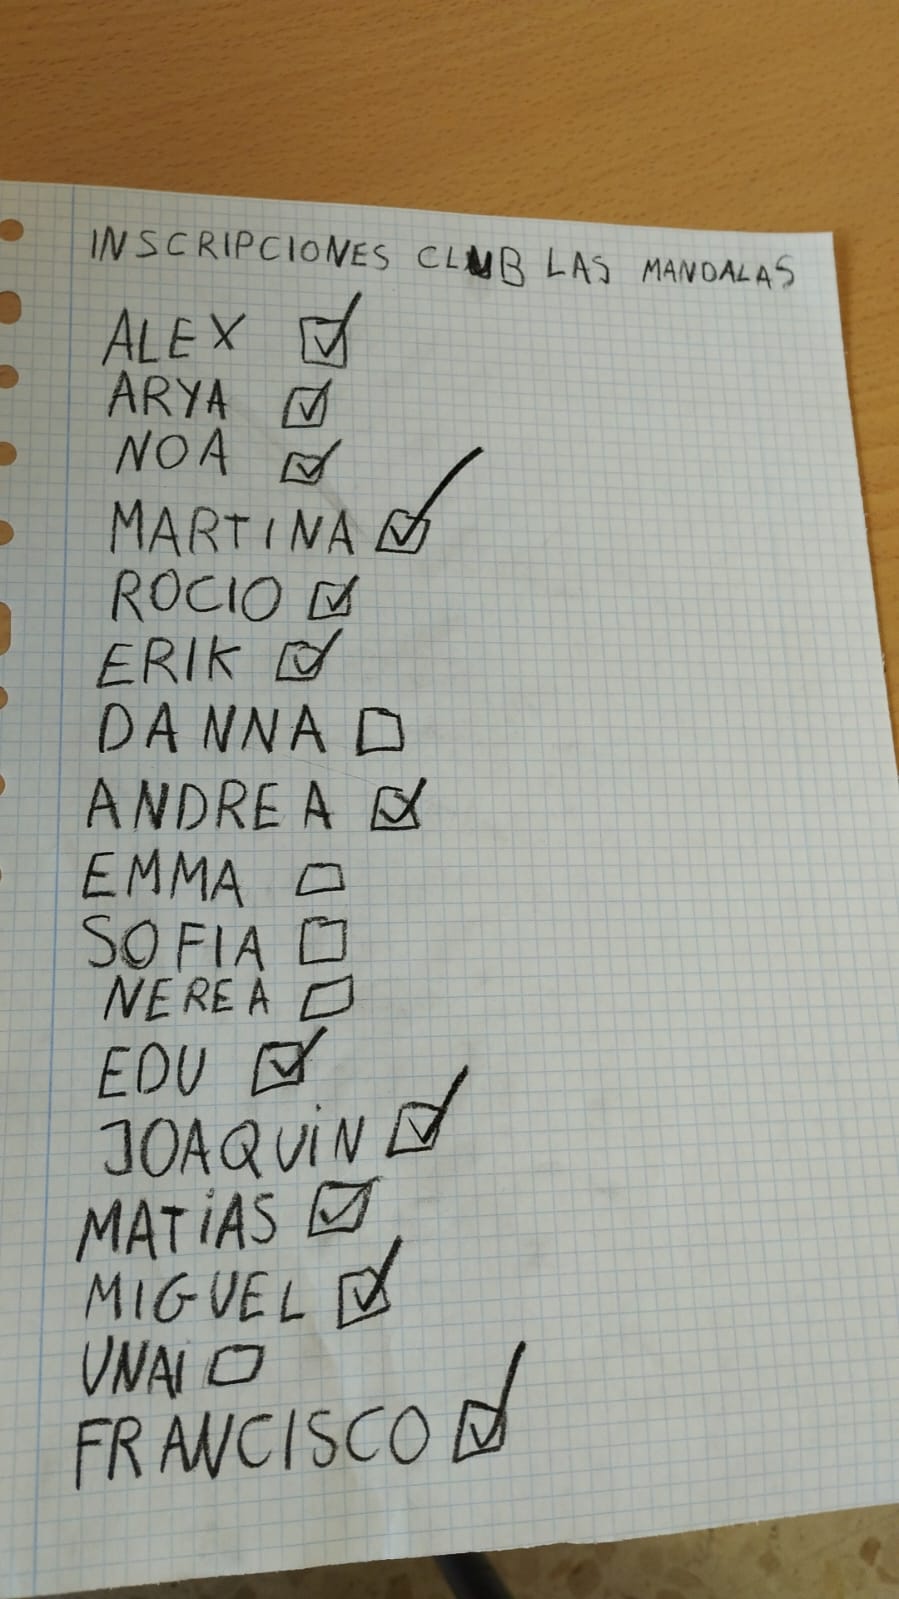 INSCRIPCIONES CLUB LAS MANDALAS
ALEX ☑
ARYA ☑
NOA ☑
MARTINA ☑
ROCIO ☑
ERIK ☑
DANNA ☐
ANDREA ☑
EMMA ☐
SOFIA ☐
NEREA ☐
EDU ☑
JOAQUÍN ☑
MATÍAS ☑
MIGUEL ☑
UNAI ☐
FRANCISCO ☑